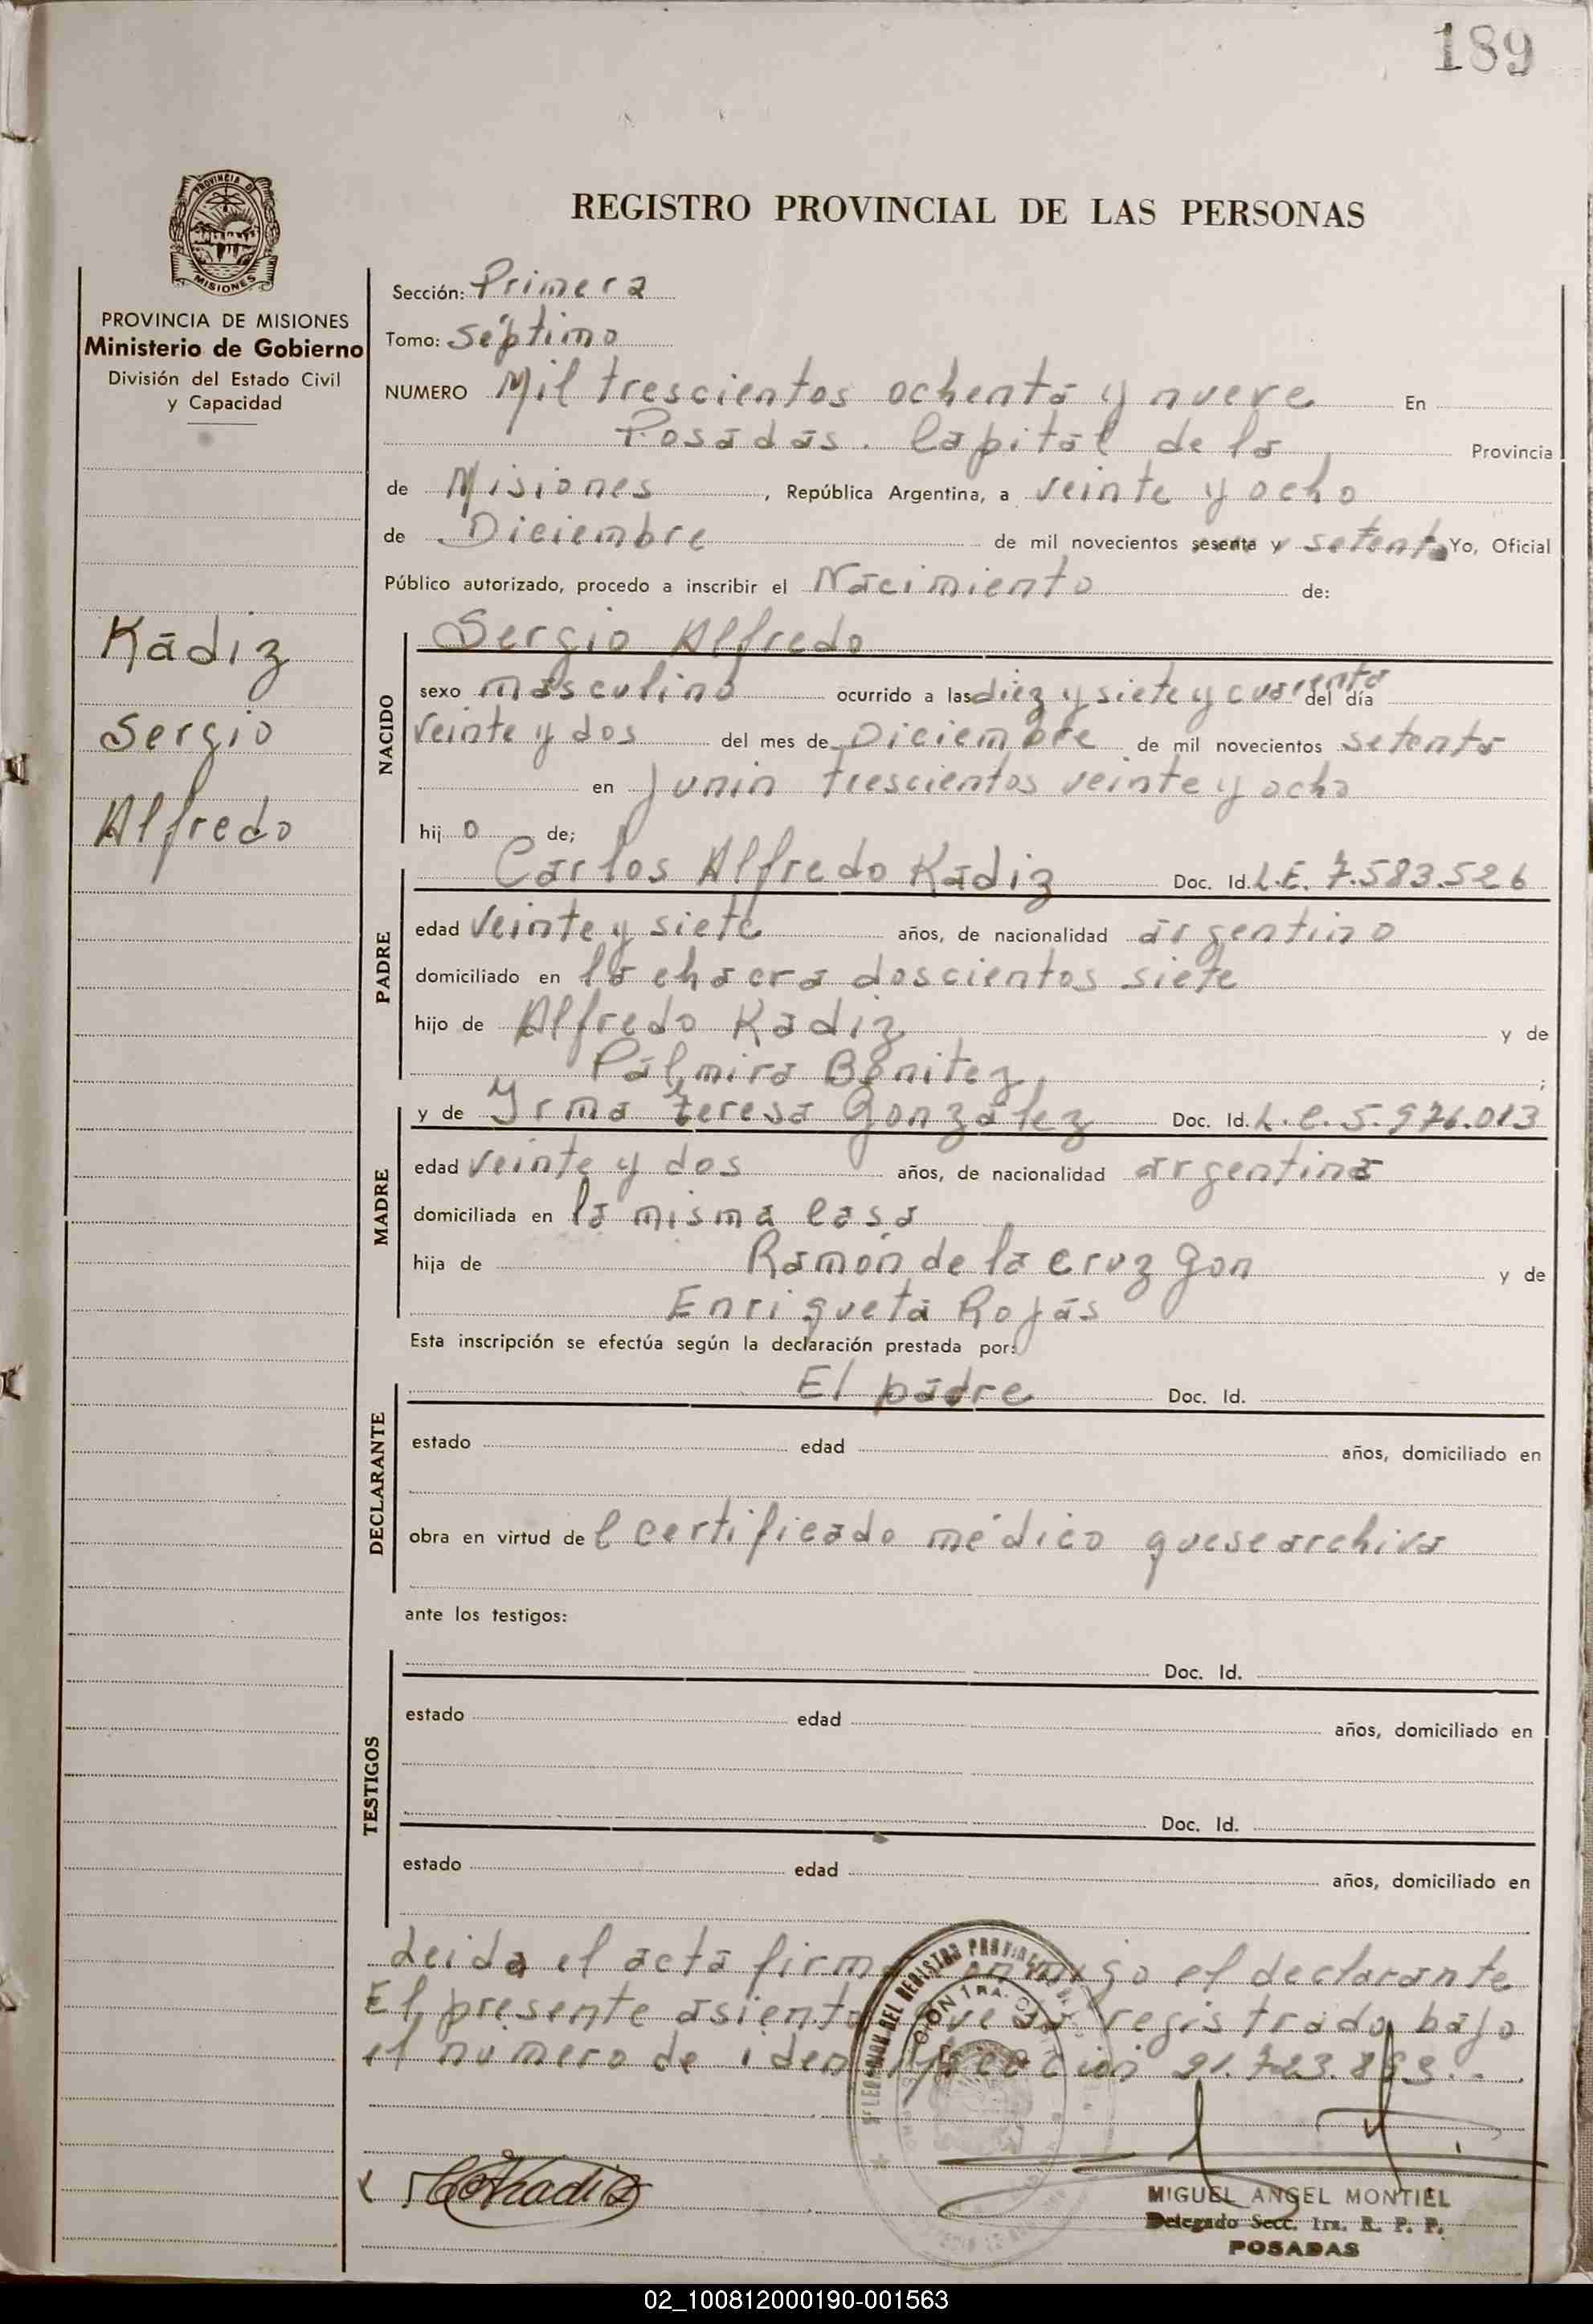 189
PROVINCIA DE
MISIONES
PROVINCIA DE MISIONES
Ministerio de Gobierno
División del Estado Civil
y Capacidad
Kadiz
Sergio
Alfredo
REGISTRO PROVINCIAL DE LAS PERSONAS
Sección: Primera
Tomo: Séptimo
NUMERO Mil trescientos ochenta y nueve En
Posadas. Capital de la Provincia
de Misiones, República Argentina, a veinte y ocho
de Diciembre de mil novecientos sesenta y setenta Yo, Oficial
Público autorizado, procedo a inscribir el Nacimiento de:
NACIDO
Sergio Alfredo
sexo masculino ocurrido a las diez y siete y cuarenta del día
veinte y dos del mes de Diciembre de mil novecientos setenta
en Junin trescientos veinte y ocho
hij o de;
PADRE
Carlos Alfredo Kadiz Doc. Id. L.E. 7.583.526
edad veinte y siete años, de nacionalidad argentino
domiciliado en la chacra doscientos siete
hijo de Alfredo Kadiz y de
Palmira Benitez;
MADRE
y de Yrma teresa González Doc. Id. L.C. 5.976.013
edad veinte y dos años, de nacionalidad argentina
domiciliada en la misma casa
hija de Ramón de la cruz Gon y de
Enriqueta Rojas
Esta inscripción se efectúa según la declaración prestada por:
DECLARANTE
El padre Doc. Id.
estado edad años, domiciliado en
obra en virtud de l certificado médico que se archiva
ante los testigos:
TESTIGOS
Doc. Id.
estado edad años, domiciliado en
Doc. Id.
estado edad años, domiciliado en
Leida el acta firma conmigo el declarante
El presente asiento registrado bajo
el numero de identificación
CAKadiz
MIGUEL ANGEL MONTIEL
Delegado Secc. 1ra. R. P. P.
POSADAS
02_100812000190-001563